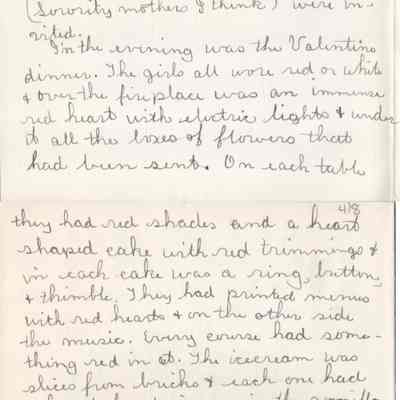 (Sorority mothers I think) were in-
vited.
In the evening was the Valentine
dinner. The girls all wore red or white
& over the fireplace was an immense
red heart with electric lights & under
it all the boxes of flowers that
had been sent. On each table
418
they had red shades and a heart
shaped cake with red trimmings &
in each cake was a ring, button,
& thimble. They had printed menus
with red hearts & on the other side
the music. Every course had some-
thing red in it. The icecream was
slices from bricks & each one had